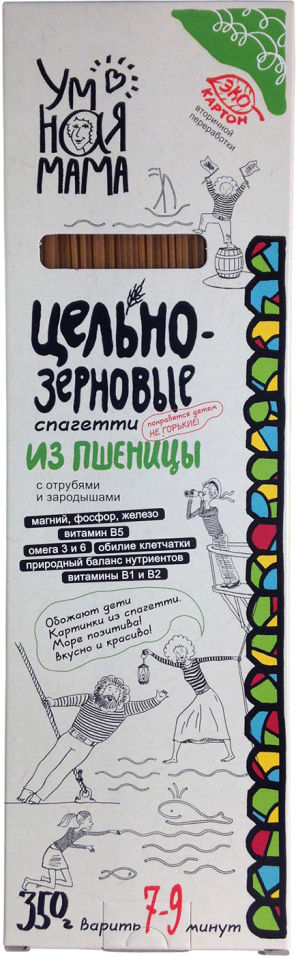 УМ
НАЯ
МАМА
ЭКО
КАРТОН
вторичной
переработки
ЦЕЛЬНО-
ЗЕРНОВЫЕ
спагетти
понравятся детям
НЕ ГОРЬКИЕ!
ИЗ ПШЕНИЦЫ
с отрубями
и зародышами
магний, фосфор, железо
витамин В5
омега 3 и 6
обилие клетчатки
природный баланс нутриентов
витамины В1 и В2
Обожают дети
Картинки из спагетти.
Море позитива!
Вкусно и красиво!
350г
варить 7-9 минут